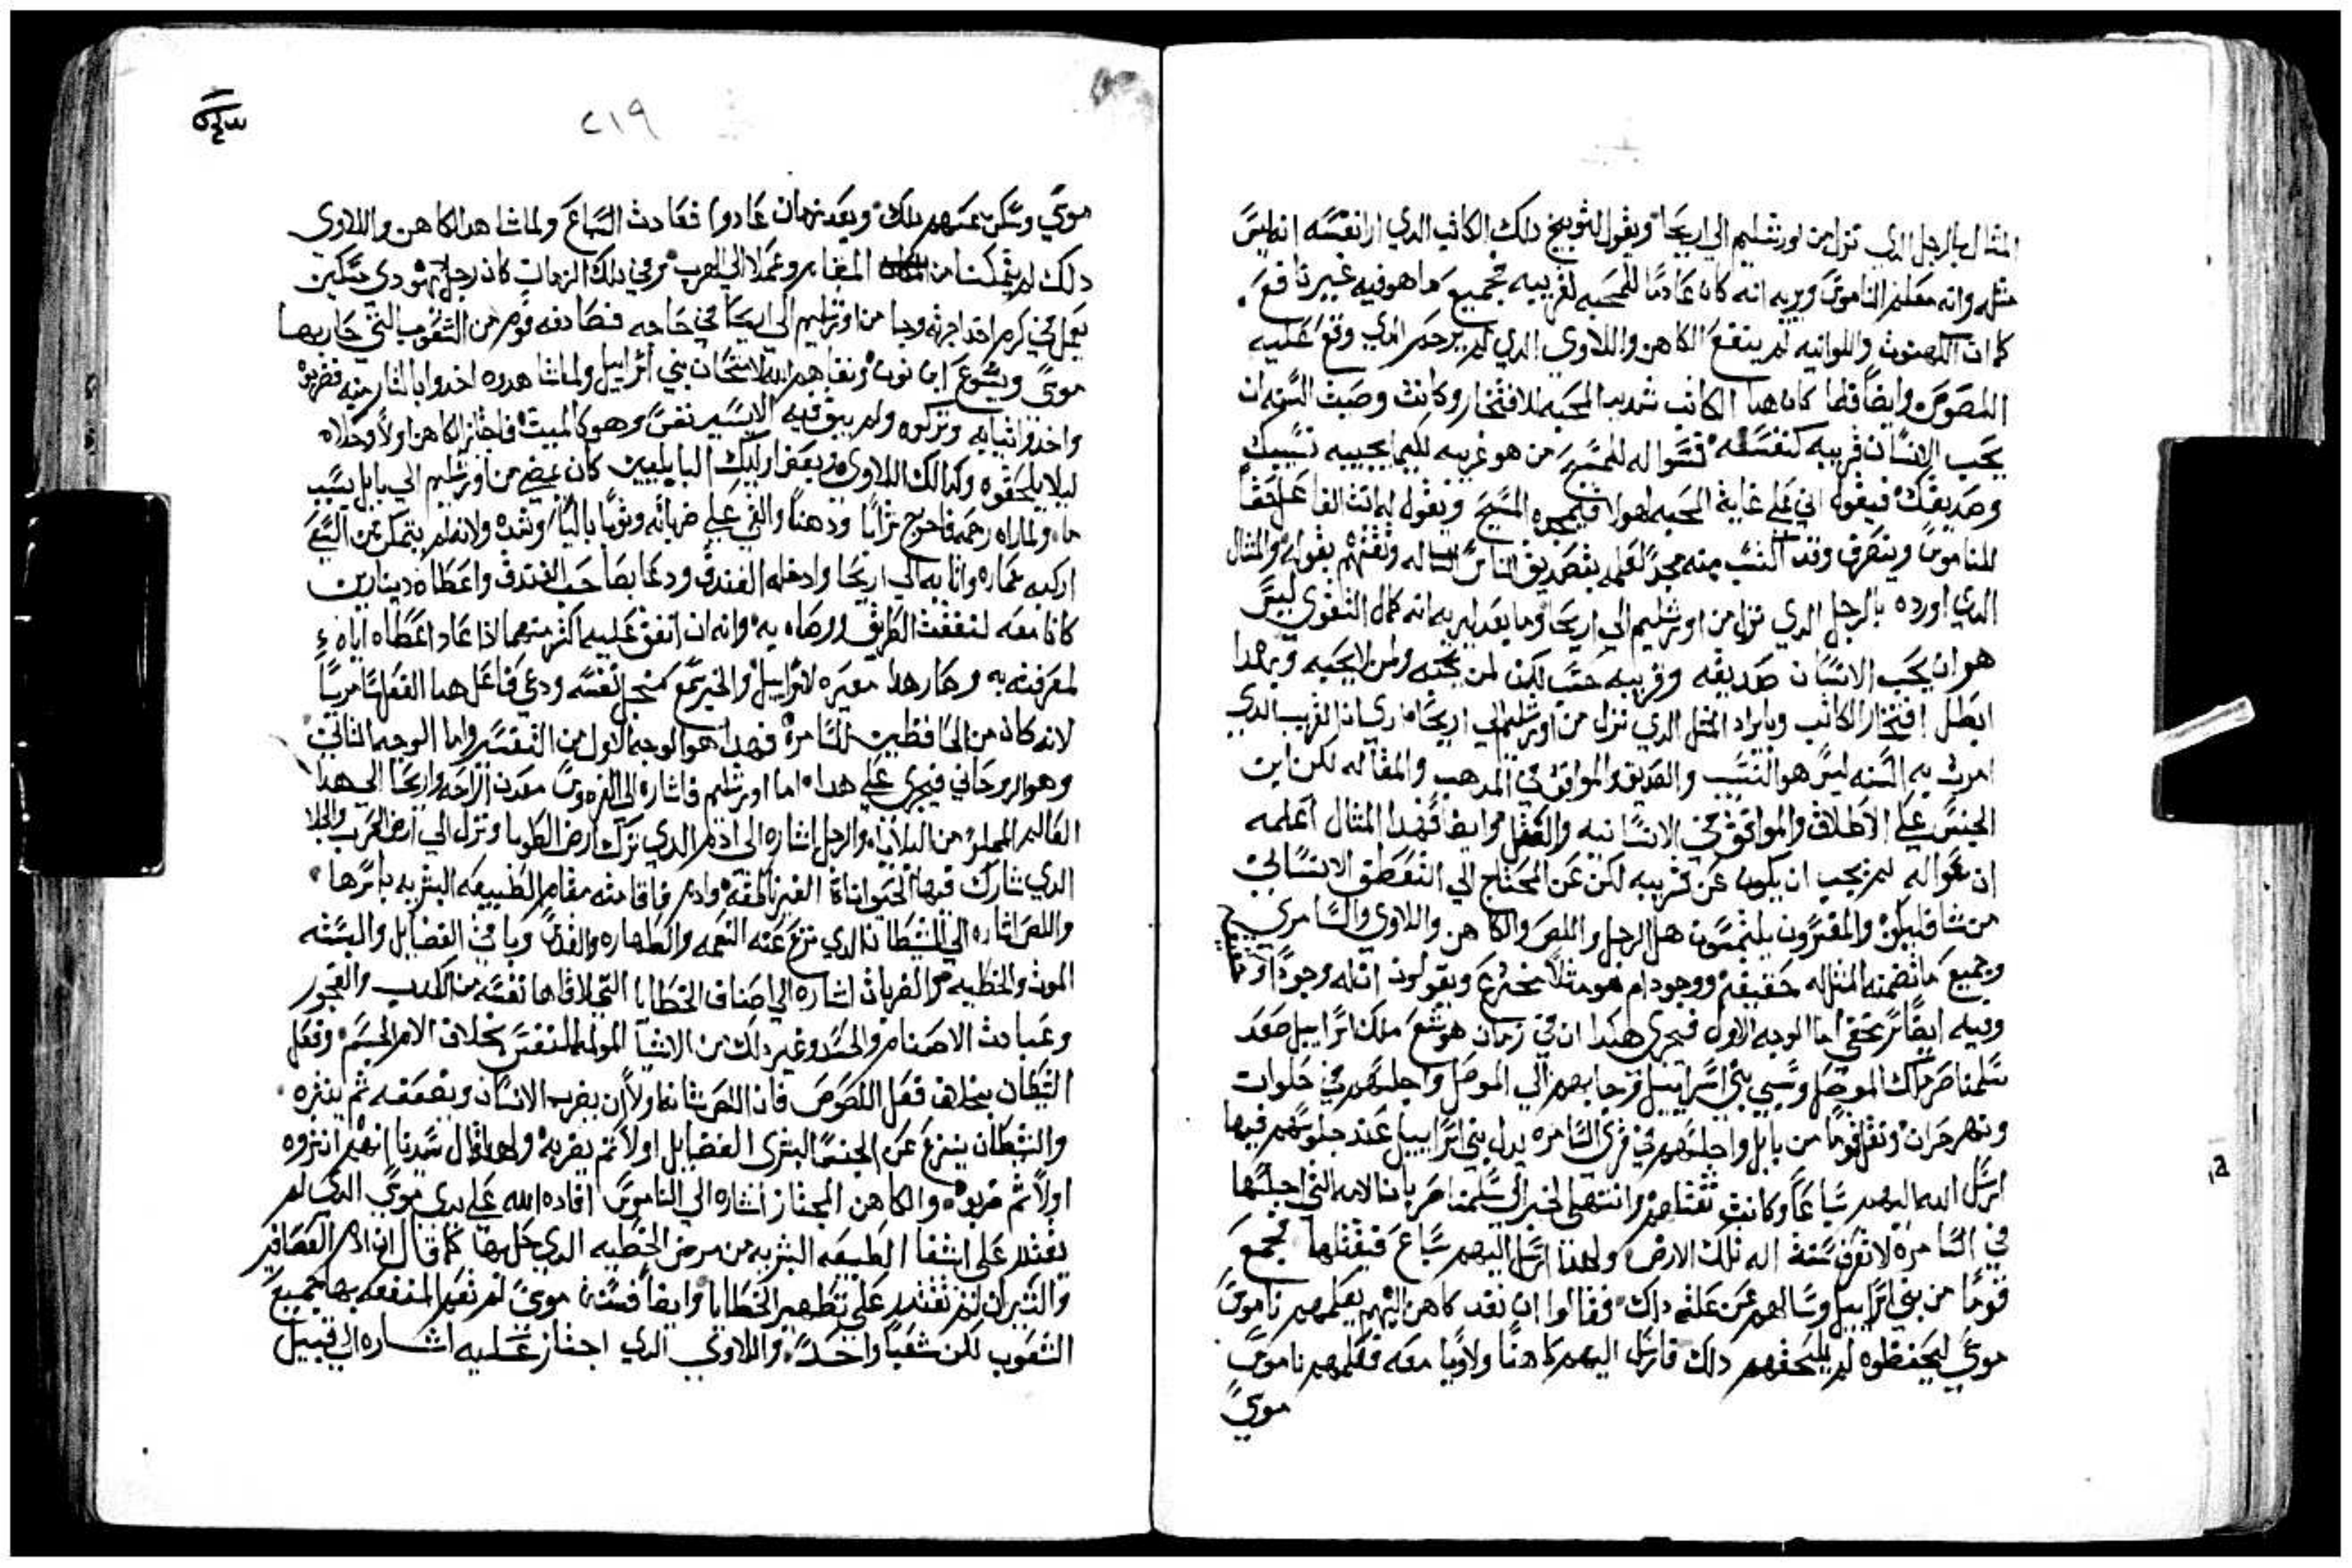 المثال بالرجل الدي نزل من اورشليم الي اريحا ويقول لتوبيخ دلك الكاتب الدي ارا نفسه انه ليس
مثله وانه معلم الناموس ويريه انه كان عادمًا للمحبه لقريبه فجميع ما هو فيه غير نافع.
كما ان الكهنوت واللوانيه لم ينفع الكاهن واللاوي الدي لم يرحم الدي وقع عليه
اللصوص وايضًا فلما كان هدا الكاتب شديد المحبه للافتخار وكانت وصيت السنه ان
يحب الانسان قريبه كنفسه فسواله للمسيح من هو غريبه لكيما يجيبه نسيبك
وصديقك فيقول اني علي غاية المحبه لهولا فيمجده المسيح ويقول له انت الفاعل حقًا
للناموس وينصرف وقد اكتسب منه مجدًا لعلمه بتصديق الناس له وثقتهم بقوله والمثال
الدي اورده بالرجل الدي نزل من اورشليم الي اريحا وما بعد ليريه انه كمال التقوي ليس
هو ان يحب الانسان صديقه وقريبه حسب لكن لمن يحبه ولمن لا يحبه وبهدا
ابطل افتخار الكاتب وبايراد المثل الدي نزل من اورشليم الي اريحا ماري ان القريب الدي
امرت به السنه ليس هو النسيب والصديق والموافق في المدهب والمقاله لكن ابن
الجنس علي الاطلاق والموافق في الانسانيه والعقل وايضًا فهدا المثال اعلمه
ان سواله لم يجب ان يكون عن قريبه لكن عن المحتاج الي التعطف الانساني
من شا فليكن والمفسرون يلتمسون هل الرجل واللص والكاهن واللاوي والسامري
وجميع ما تضمنه المثل له حقيقه ووجود ام هو مثلاً مخترع ويقولون ان له وجودًا
وفيه ايضًا اما الوجه الاول فيجري هكدا ان في زمان هوشع ملك اسراييل صعد
سلمناصر ملك الموصل وسبي بني اسراييل وجا بهم الي الموصل واجلسهم في حلوات
ونهر حران ونقل قومًا من بابل واجلسهم في قري السامره بدل بني اسراييل عند جلوسهم فيها
ارسل الله اليهم سباعًا وكانت تقتلهم وانتهي الخبر الي سلمناصر بان الامه التي اجلستها
في السامرة لا تعرف سنة اله تلك الارض ولهدا ارسل اليهم سباع فيقتلها فجمع
قومًا من بني اسراييل وسالهم عن علة داك فقالوا ان نفد كاهن اليهم يعلمهم ناموس
موسي ليحفظوه لم يلحقهم دلك فارسل اليهم كاهنًا ولاويًا معه فعلمهم ناموس
موسي
٢١٩
موسي وسكن عنهم دلك وبعد زمان عادوا فعادت السباع ولما شاهد الكاهن واللاوي
دلك لم يتمكنا من المقام وعملا الي الهرب وفي دلك الزمان كان رجل يهودي مسكين
يعمل في كرم اخد اجرته وجا من اورشليم الي اريحا في حاجه فصادفه قوم من الشعوب التي حاربها
موسي ويشوع ابن نون وبقاهم الله لامتحان بني اسراييل ولما شاهدوه اخدوا بالثار منه فضربوه
واخدوا ثيابه وتركوه ولم يبق فيه الا يسير نفس وهو كالميت فاجتاز الكاهن اولاً وخلاه
ليلا يلحقوه وكدالك اللاوي وبعض اوليك البابليين كان يمضي من اورشليم الي بابل بسبب
ما ولما راه رحمه فاخرج شرابًا ودهنًا والقي علي ضرباته وثوبًا باليًا وشده ولانه لم يتمكن من السعي
اركبه حماره واتا به الي اريحا وادخله الفندق ودعا بصاحب الفندق واعطاه دينارين
كانا معه لنفقت الطريق ووصاه به وانه ان انفق عليه اكثر منهما ادا عاد اعطاه اياه
لمعرفته به وصار هدا معيره لاسراييل والخبر سمع كمنحل نفسه ودعي فاعل هدا الفعل سامريًا
لانه كان من الحافظين للسامرة فهدا هو الوجه الاول من التفسير واما الوجه التاني
وهو الروحاني فيجري علي هدا اما اورشليم فاشاره الي الفردوس معدن الراحه واريحا الي هدا
العالم المملو من البلايا والرجل اشاره الي ادم الدي ترك ارض الطوبا ونزل الي ارض الحرب والجلا
الدي شارك فيها الحيوانات الغير ناطقه وادم فاقامته مقام الطبيعه البشريه باسرها
واللص اشاره الي الشيطان الدي نزع عنه النعمه والطهاره والقدس وباقي الفضايل والبسته
الموت والخطيه والضربات اشاره الي اصناف الخطايا التي لاقاها نفسه من الكدب والفجور
وعبادت الاصنام والحسد وغير دلك من الاشيا المولمه للنفس بخلاف الام الجسم وفعل
الشيطان بخلاف فعل اللصوص فان اللص شانه اولاً ان يضرب الانسان ويضعفه ثم ينتره
والشيطان ينزع عن الجنس البشري الفضايل اولاً ثم يضربه ولهدا قال سيدنا انهم انتزوه
اولاً ثم ضربوه والكاهن المجتاز اشاره الي الناموس افاده الله علي يدي موسي الدي لم
يقتدر علي اشفا الطبيعه البشريه من مرض الخطيه الدي حل بها كما قال ان ادم العصافير
والثيران لم تقتدر علي تطهير الخطايا وايضًا فسنة موسي لم تعم المنفعه بها جميع
الشعوب لكن شعبًا واحدًا واللاوي الدي اجتاز عليه اشاره الي قبيل